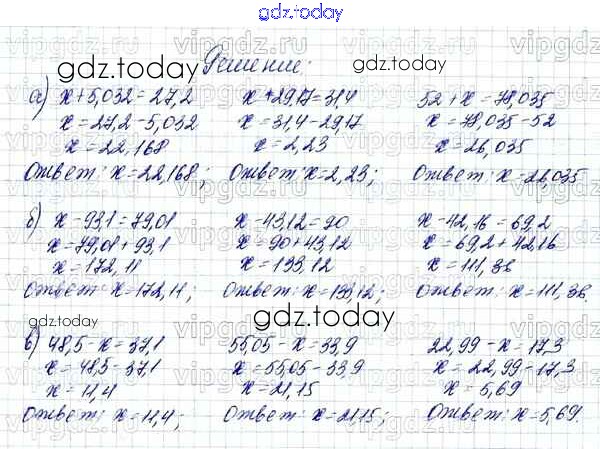 gdz.today
Решение:
gdz.today gdz.today
а) x+5,032=27,2 x+29,17=31,4 52+x=78,035
x=27,2-5,032 x=31,4-29,17 x=78,035-52
x=22,168 x=2,23 x=26,035
Ответ: x=22,168; Ответ: x=2,23; Ответ: x=26,035
б) x-93,1=79,01 x-43,12=90 x-42,16=69,2
x=79,01+93,1 x=90+43,12 x=69,2+42,16
x=172,11 x=133,12 x=111,36
Ответ: x=172,11; Ответ: x=133,12; Ответ: x=111,36.
gdz.today
в) 48,5-x=37,1 55,05-x=33,9 22,99-x=17,3
x=48,5-37,1 x=55,05-33,9 x=22,99-17,3
x=11,4 x=21,15 x=5,69
Ответ: x=11,4; Ответ: x=21,15; Ответ: x=5,69.